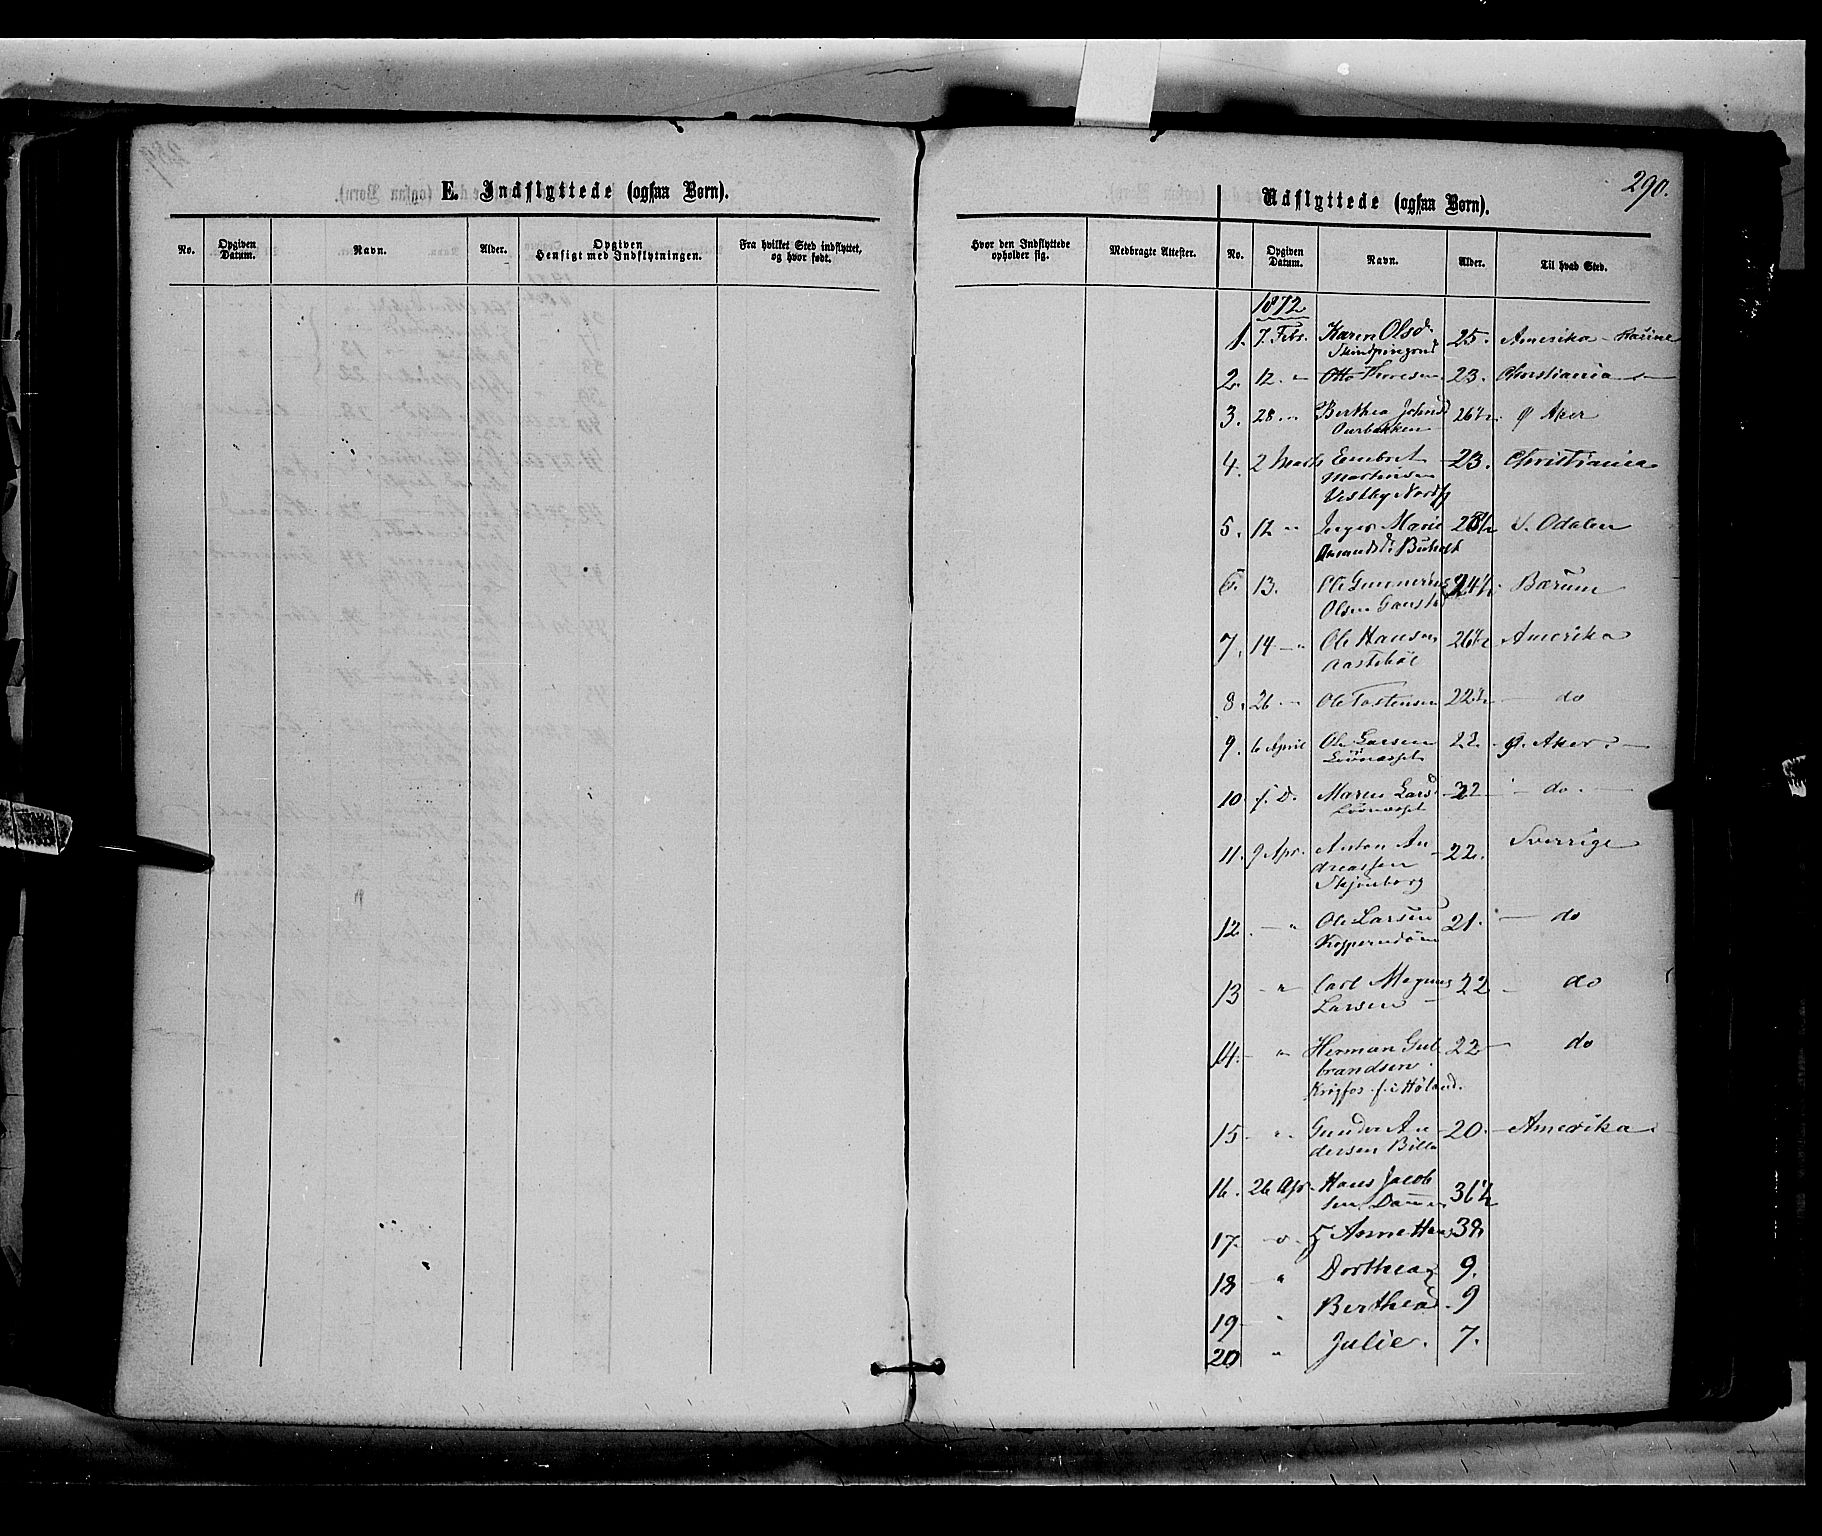 290.
E. Indflyttede (ogsaa Børn).
No. Opgiven Datum. Navn. Alder. Opgiven Hensigt med Indflytningen. Fra hvilket Sted indflyttet, og hvor født.
Hvor den Indflyttede opholder sig. Medbragte Attester.
Udflyttede (ogsaa Børn).
No. Opgiven Datum. Navn. Alder. Til hvad Sted.
1872
1. 7. Febr. Karen Olsd. 25. Amerika - Racine
2. 12. " Otto Thoresen 23. Christiania
3. 28 " Berthea Johnsd 26½. Ø Aker
Ourbakken
4. 2 Marts Embret 23. Christiania
Martinsen
Vestby Nordf
5. 12 " Inger Marie 28½ S. Odalen
Amundsd.
6. 13. Ole Gunnerius 24½. Bærum
Olsen
7. 14 " Ole Hansen 26½ Amerika
Aasteböl
8. 26 " Ole Tostensen 22½ do
9. 6 April Ole Larsen 22. Ø. Aker.
10. s. D. Maren Lars 22 do.
11. 9 Apr. Anton An 22. Sverrige
dreassen
12. " Ole Larsen 21. do
13 " Carl Magnus 22 do
Larsen
14. " Herman Gul 22 do
brandsen
f. i Høland.
15 " Gunder An 20. Amerika.
dersen
16. 26 Apr Hans Jacob 36½
sen
17. " Anne Hans 38
18 " Dorthea 9.
19 " Berthea 9
20 " Julie. 7.